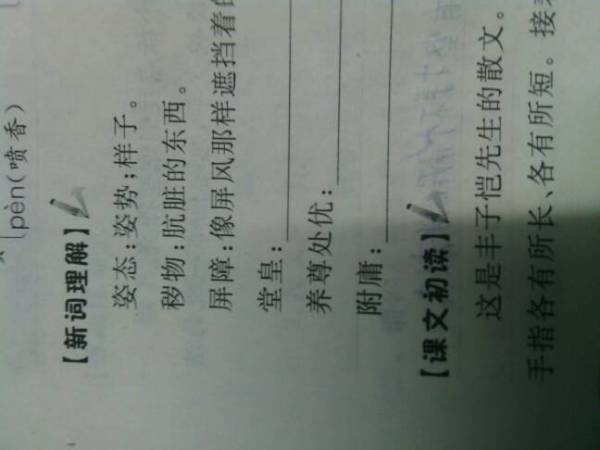 pèn(喷香)
【新词理解】
姿态:姿势;样子。
秽物:肮脏的东西。
屏障:像屏风那样遮挡着的
堂皇:
养尊处优:
附庸:
【课文初读】
这是丰子恺先生的散文。
手指各有所长、各有所短。接